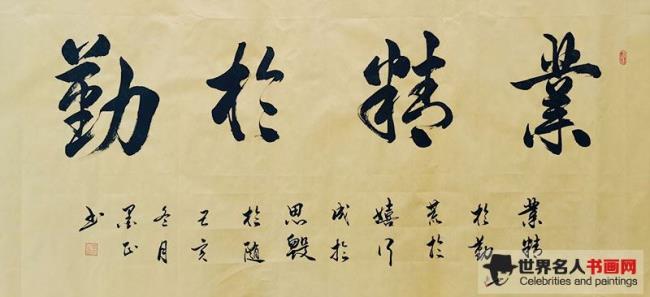 業精於勤
業精
於勤
荒於
嬉行
成於
思毀
於随
己亥
冬月
墨正
书
世界名人书画网
Celebrities and paintings